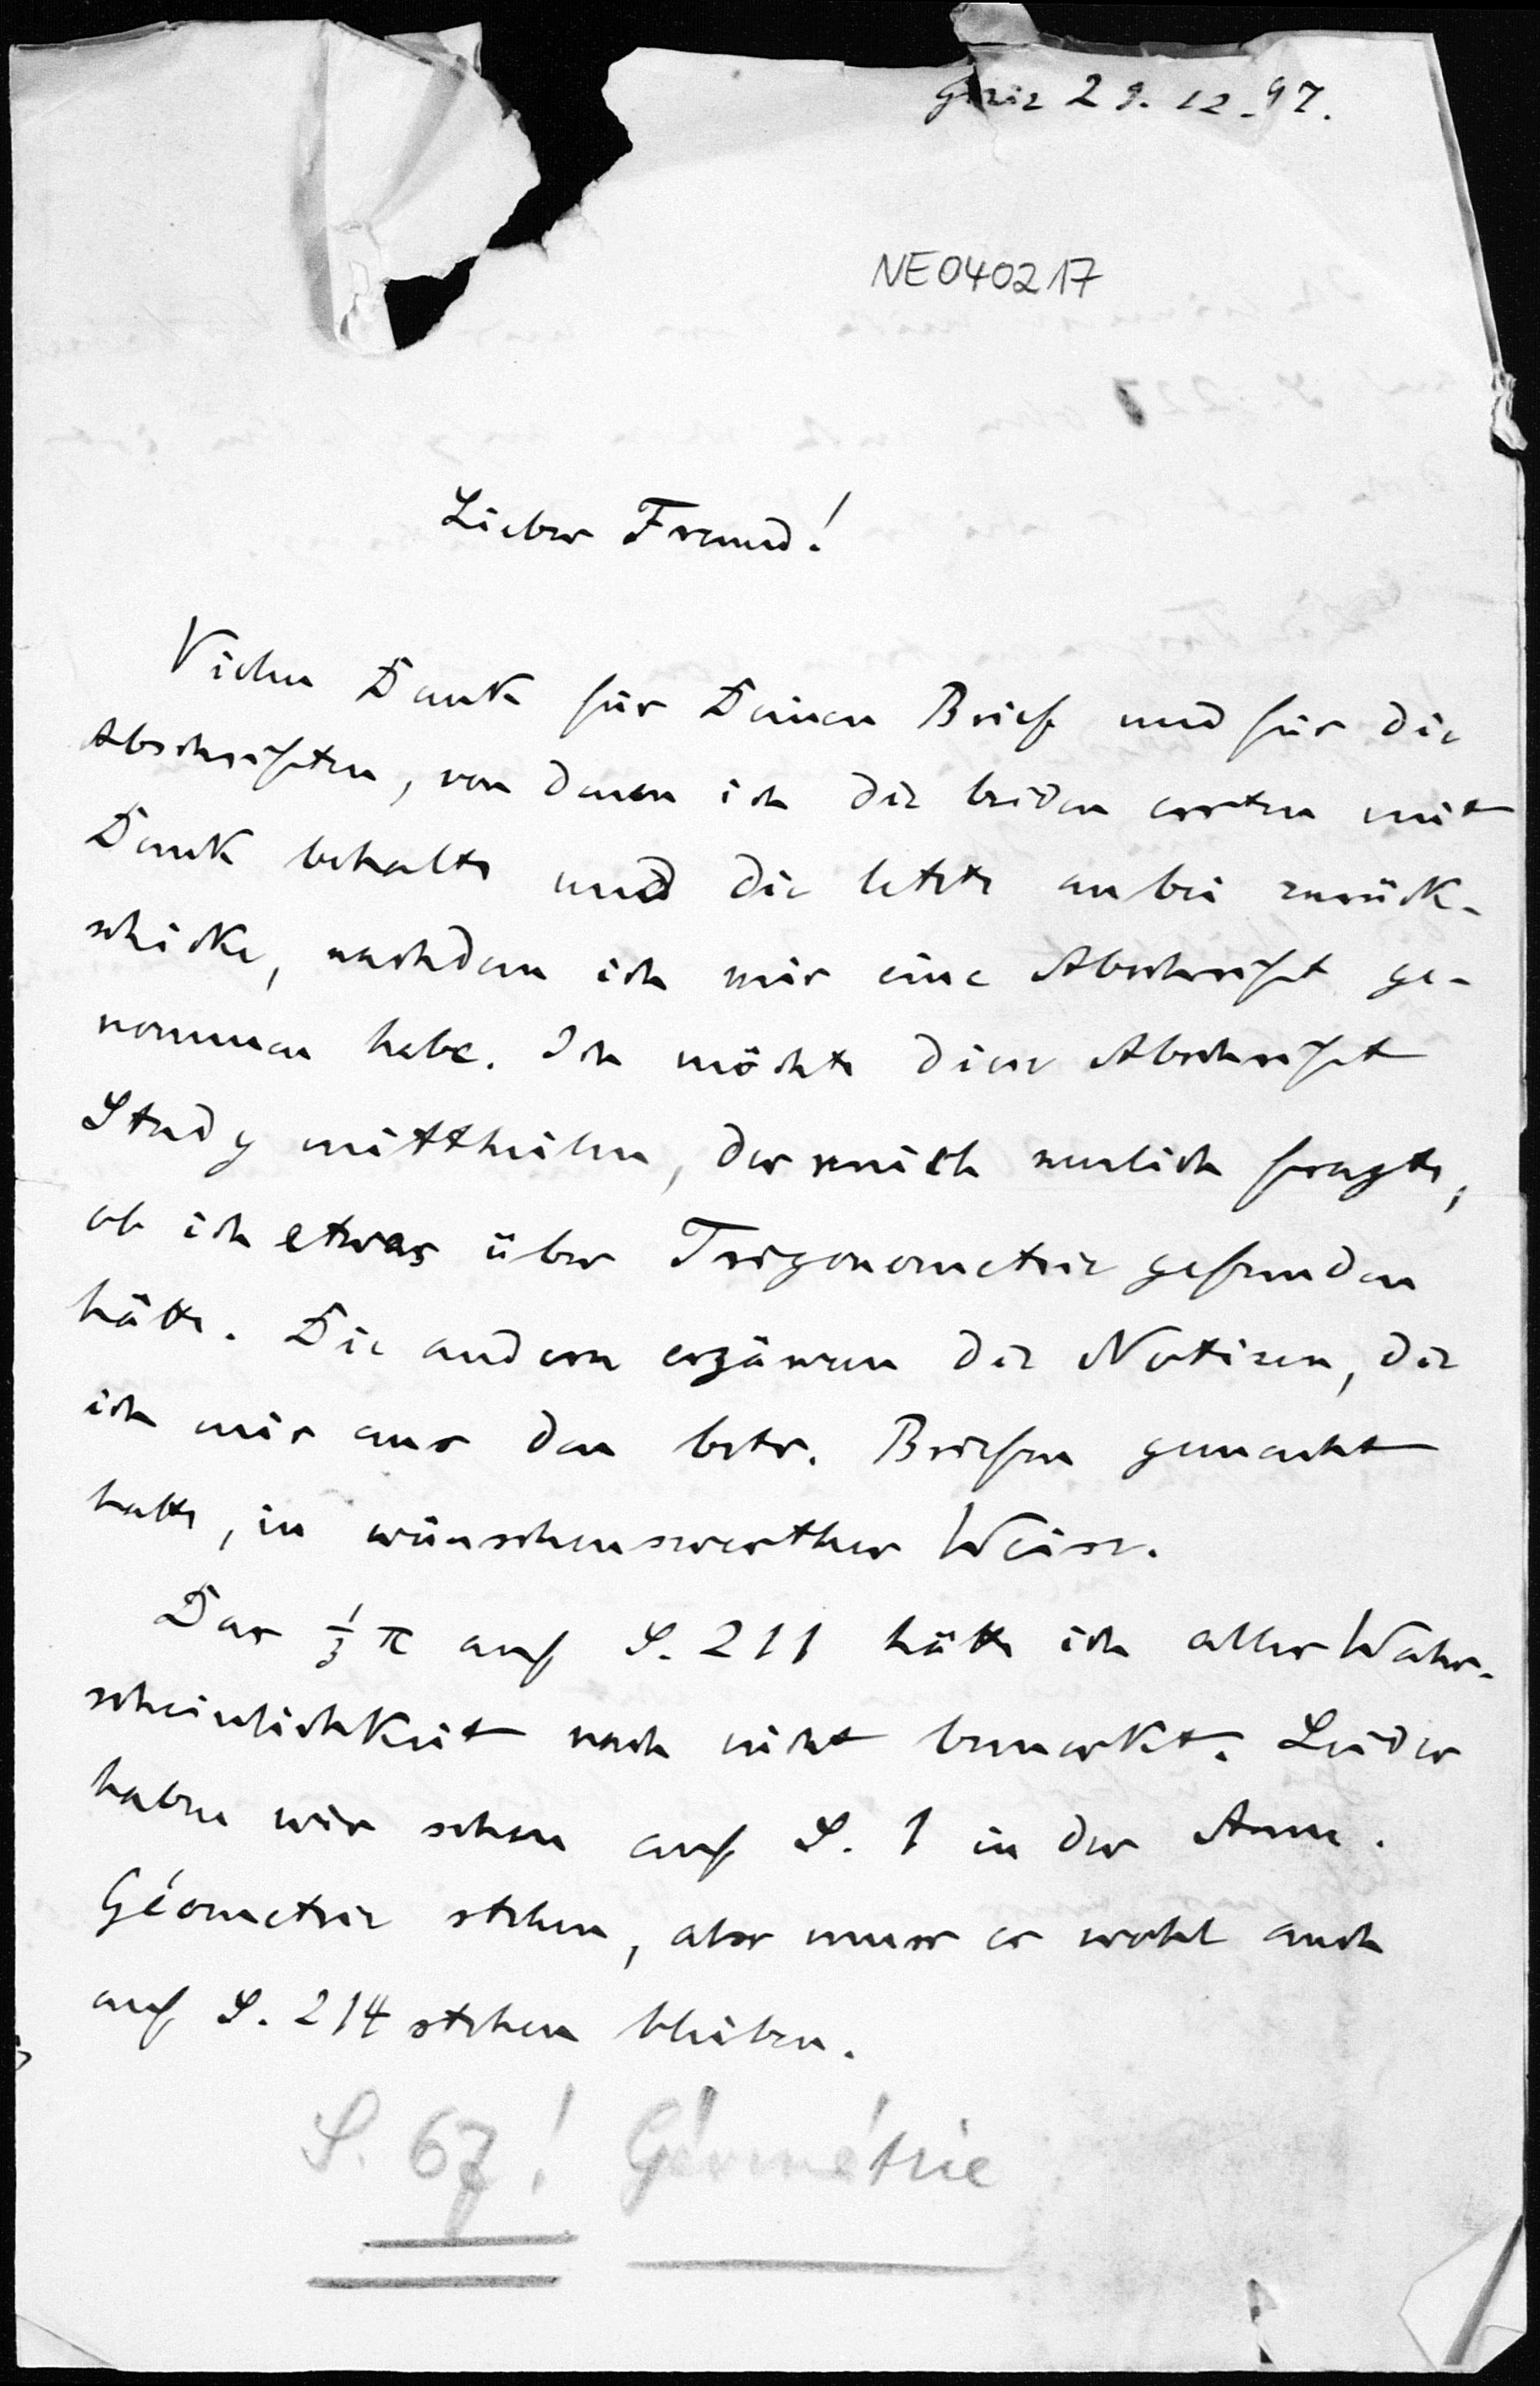 Greiz 29. 12. 97.
NE040217
Lieber Freund!
Vielen Dank für Deinen Brief und für die
Abschriften, von denen ich die beiden ersten mit
Dank behalte und die letzte anbei zurück-
schicke, nachdem ich mir eine Abschrift ge-
nommen habe. Ich möchte diese Abschrift
Study mittheilen, der mich neulich fragte,
ob ich etwas über Trigonometrie gefunden
hätte. Die andern ergänzen die Notizen, die
ich mir aus den betr. Briefen gemacht
hatte, in wünschenswerther Weise.
Das ⅓ π auf S. 211 hätte ich aller Wahr-
scheinlichkeit nach nicht bemerkt. Leider
haben wir schon auf S. 1 in der Anm.
Géometrie stehen, also muss es wohl auch
auf S. 214 stehen bleiben.
S. 67! Géométrie